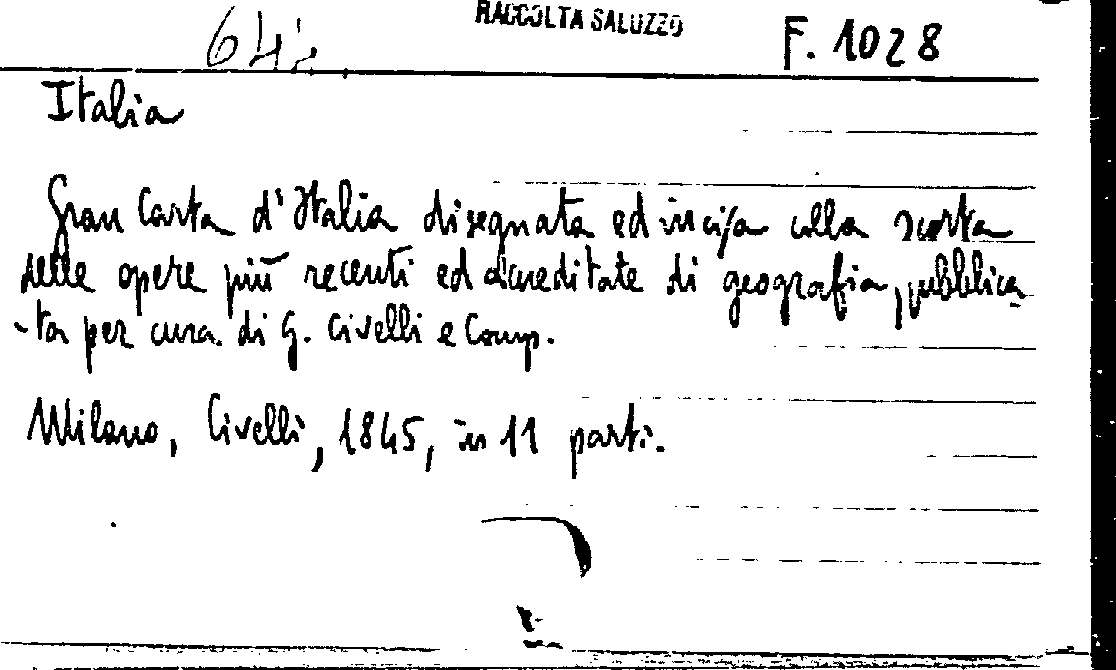 RACCOLTA SALUZZO
F. 1028
Italia
Gran Carta d'Italia disegnata ed incisa colla scorta
delle opere più recenti ed accreditate di geografia, pubblica
-ta per cura di G. Civelli e Comp.
Milano, Civelli, 1845, in 11 parti.